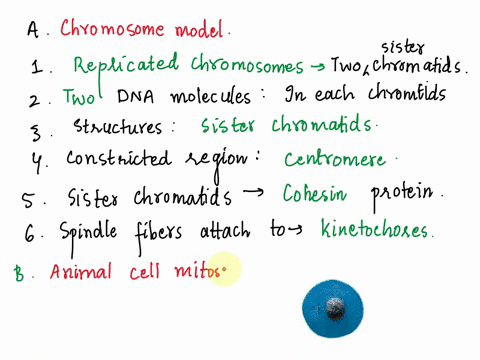 A. Chromosome model.
1. Replicated chromosomes → Two sister chromatids.
2. Two DNA molecules : In each chromtids
3. Structures : Sister chromatids.
4. Constricted region : Centromere.
5. Sister chromatids → Cohesin protein.
6. Spindle fibers attach to → kinetochores.
B. Animal cell mitos